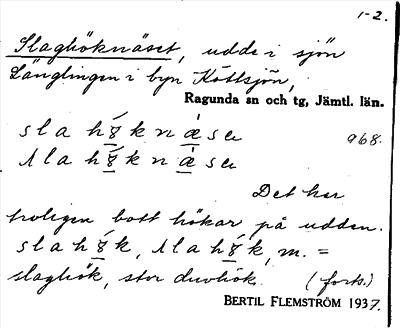 1-2.
Slaghöknäset, udde i sjön
Länglingen i byn Köttsjön,
Ragunda sn och tg, Jämtl. län.
slahɞ̲̀knæ̲̀se 968.
slahɞ̲́knæ̲̀se
Det har
troligen bott hökar på udden.
slahɞ̲̀k, slahɞ̲́k, m. =
slaghök, stor duvhök. (forts.)
BERTIL FLEMSTRÖM 1937.